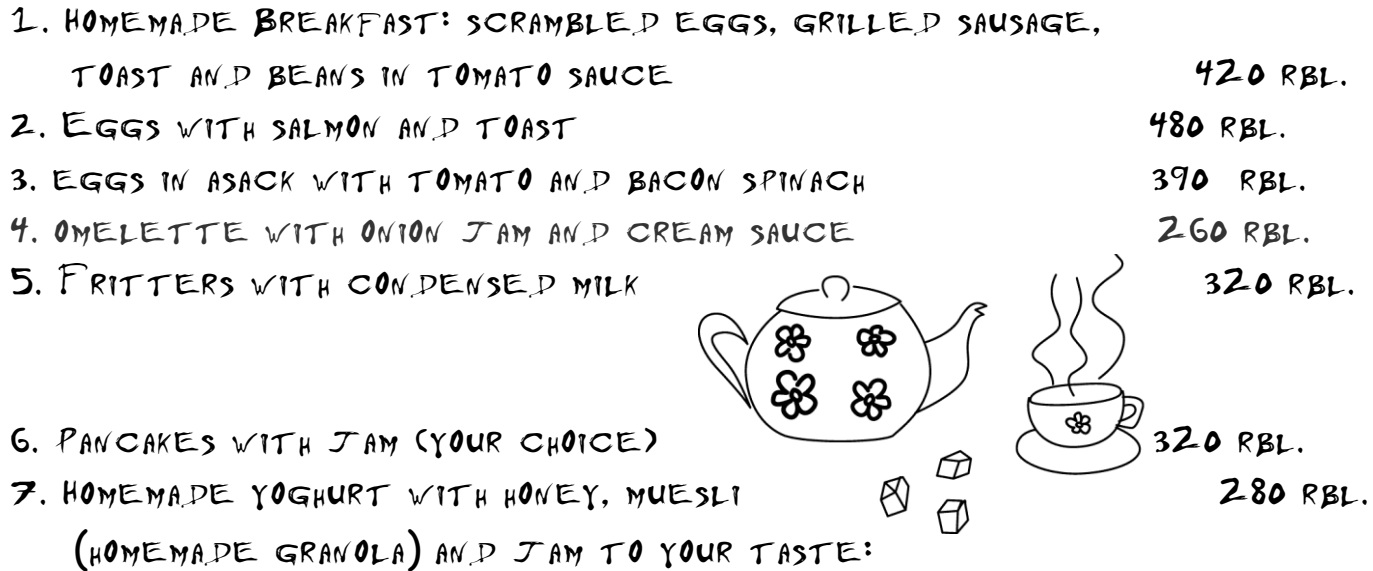 1. HOMEMADE BREAKFAST: SCRAMBLED EGGS, GRILLED SAUSAGE,
TOAST AND BEANS IN TOMATO SAUCE 420 RBL.
2. EGGS WITH SALMON AND TOAST 480 RBL.
3. EGGS IN ASACK WITH TOMATO AND BACON SPINACH 390 RBL.
4. OMELETTE WITH ONION JAM AND CREAM SAUCE 260 RBL.
5. FRITTERS WITH CONDENSED MILK 320 RBL.
6. PANCAKES WITH JAM (YOUR CHOICE) 320 RBL.
7. HOMEMADE YOGHURT WITH HONEY, MUESLI 280 RBL.
(HOMEMADE GRANOLA) AND JAM TO YOUR TASTE: